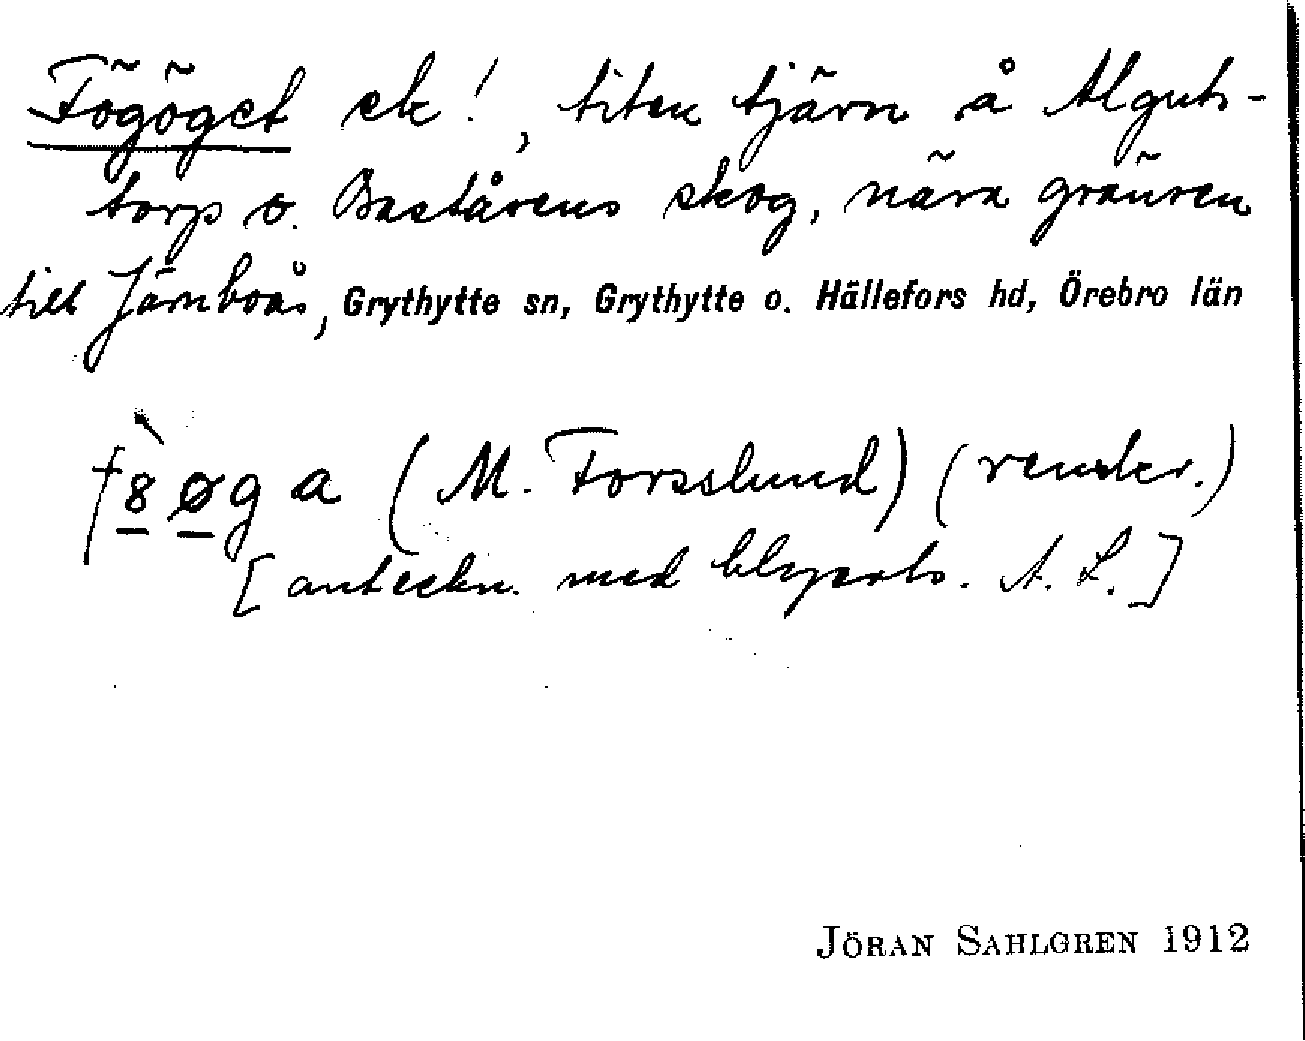 Fögöget ek!, liten tjärn å Alguts-
torp o. Baståsens skog, nära gränsen
till Järnboås, Grythytte sn, Grythytte o. Hällefors hd, Örebro län
f8øga (M. Forsslund)
[anteckn. med blyerts. A. L.]
JÖRAN SAHLGREN 1912